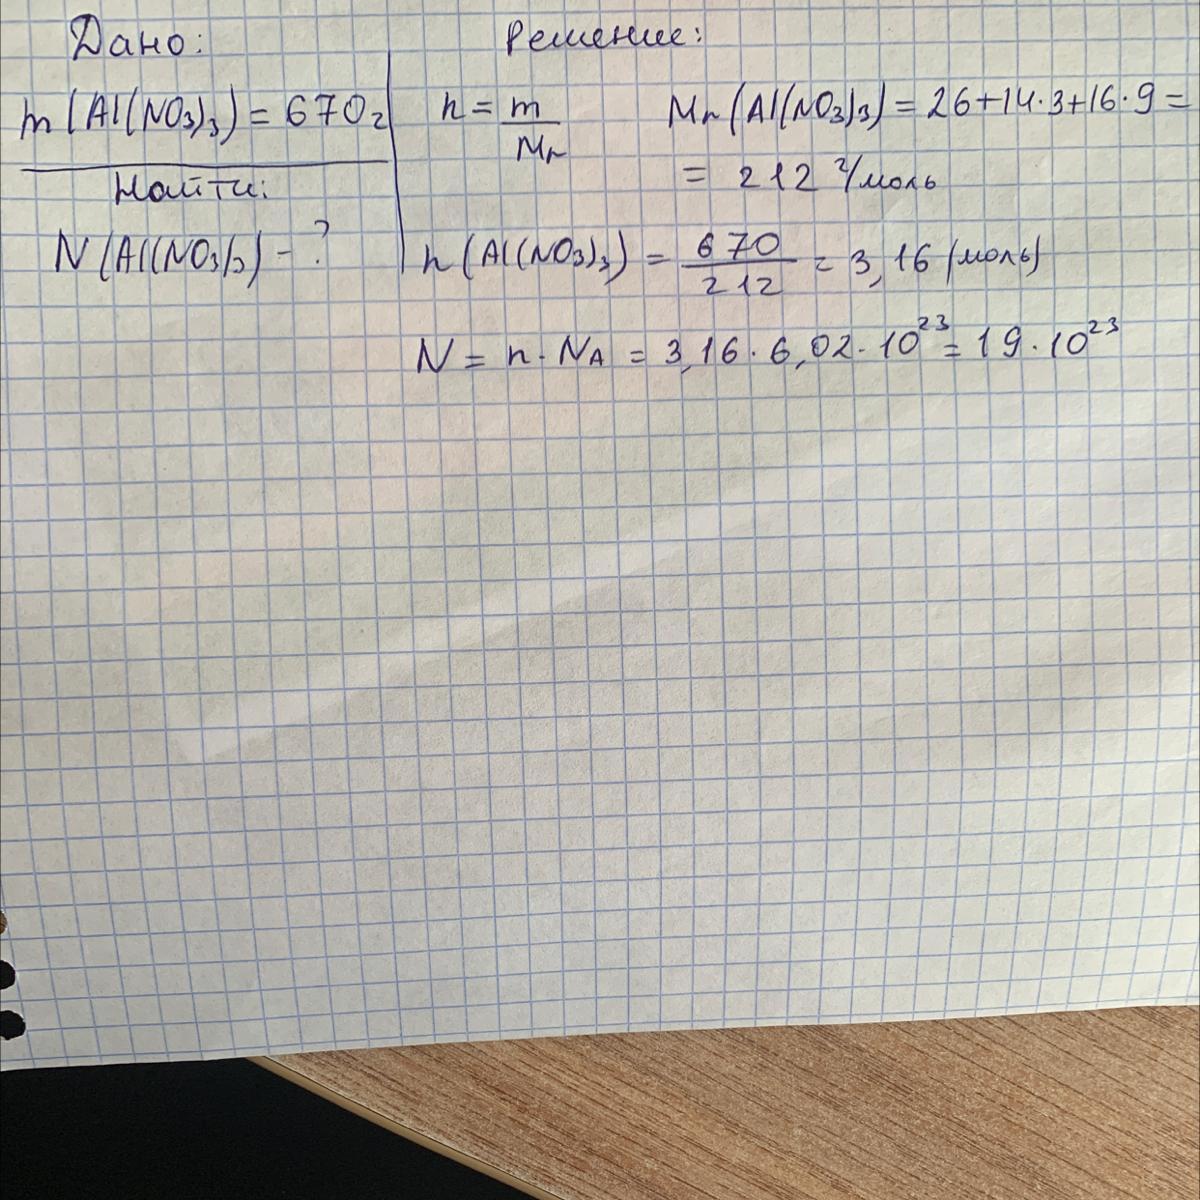 Дано:
m(Al(NO₃)₃) = 670г
Найти:
N(Al(NO₃)₃) - ?
Решение:
n = m/Mr
Mr(Al(NO₃)₃) = 26+14·3+16·9 =
= 212 г/моль
n(Al(NO₃)₃) = 670/212 = 3,16 (моль)
N = n · NA = 3,16 · 6,02 · 10²³ = 19 · 10²³